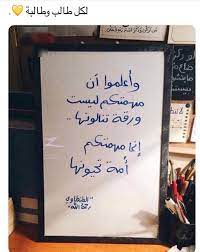 لكل طالب وطالبة
وأعلموا أن
مهمتكم ليست
ورقة تنالونها..
إنما مهمتكم
أمة تحيونها
الطنطاوي
رحمه الله